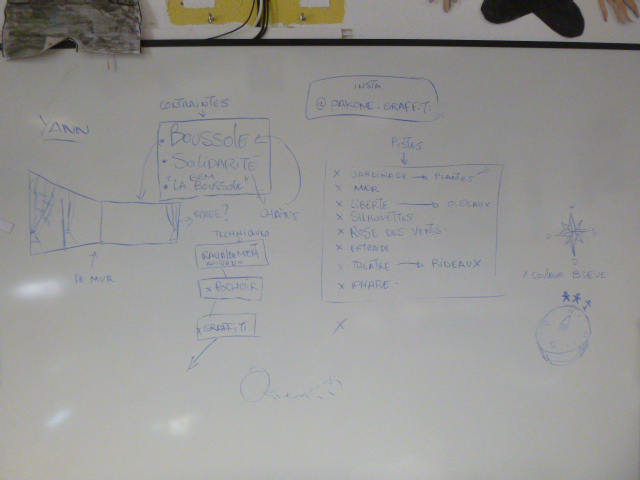 INSTA
@ PAKONE.GRAFFITI
CONTRAINTES
YANN
• BOUSSOLE
• SOLIDARITÉ
GEM
• "LA BOUSSOLE"
ROUGE?
CHAÎNE
LE MUR
TECHNIQUES
RAVALEMENT
x POCHOIR
x GRAFFITI
PISTES
x JARDINAGE → PLANTES
x MER
x LIBERTÉ → OISEAUX
x SILHOUETTES
x ROSE DES VENTS
x ESTRADE
x THÉÂTRE → RIDEAUX
x PHARE
x
x COULEUR BLEUE